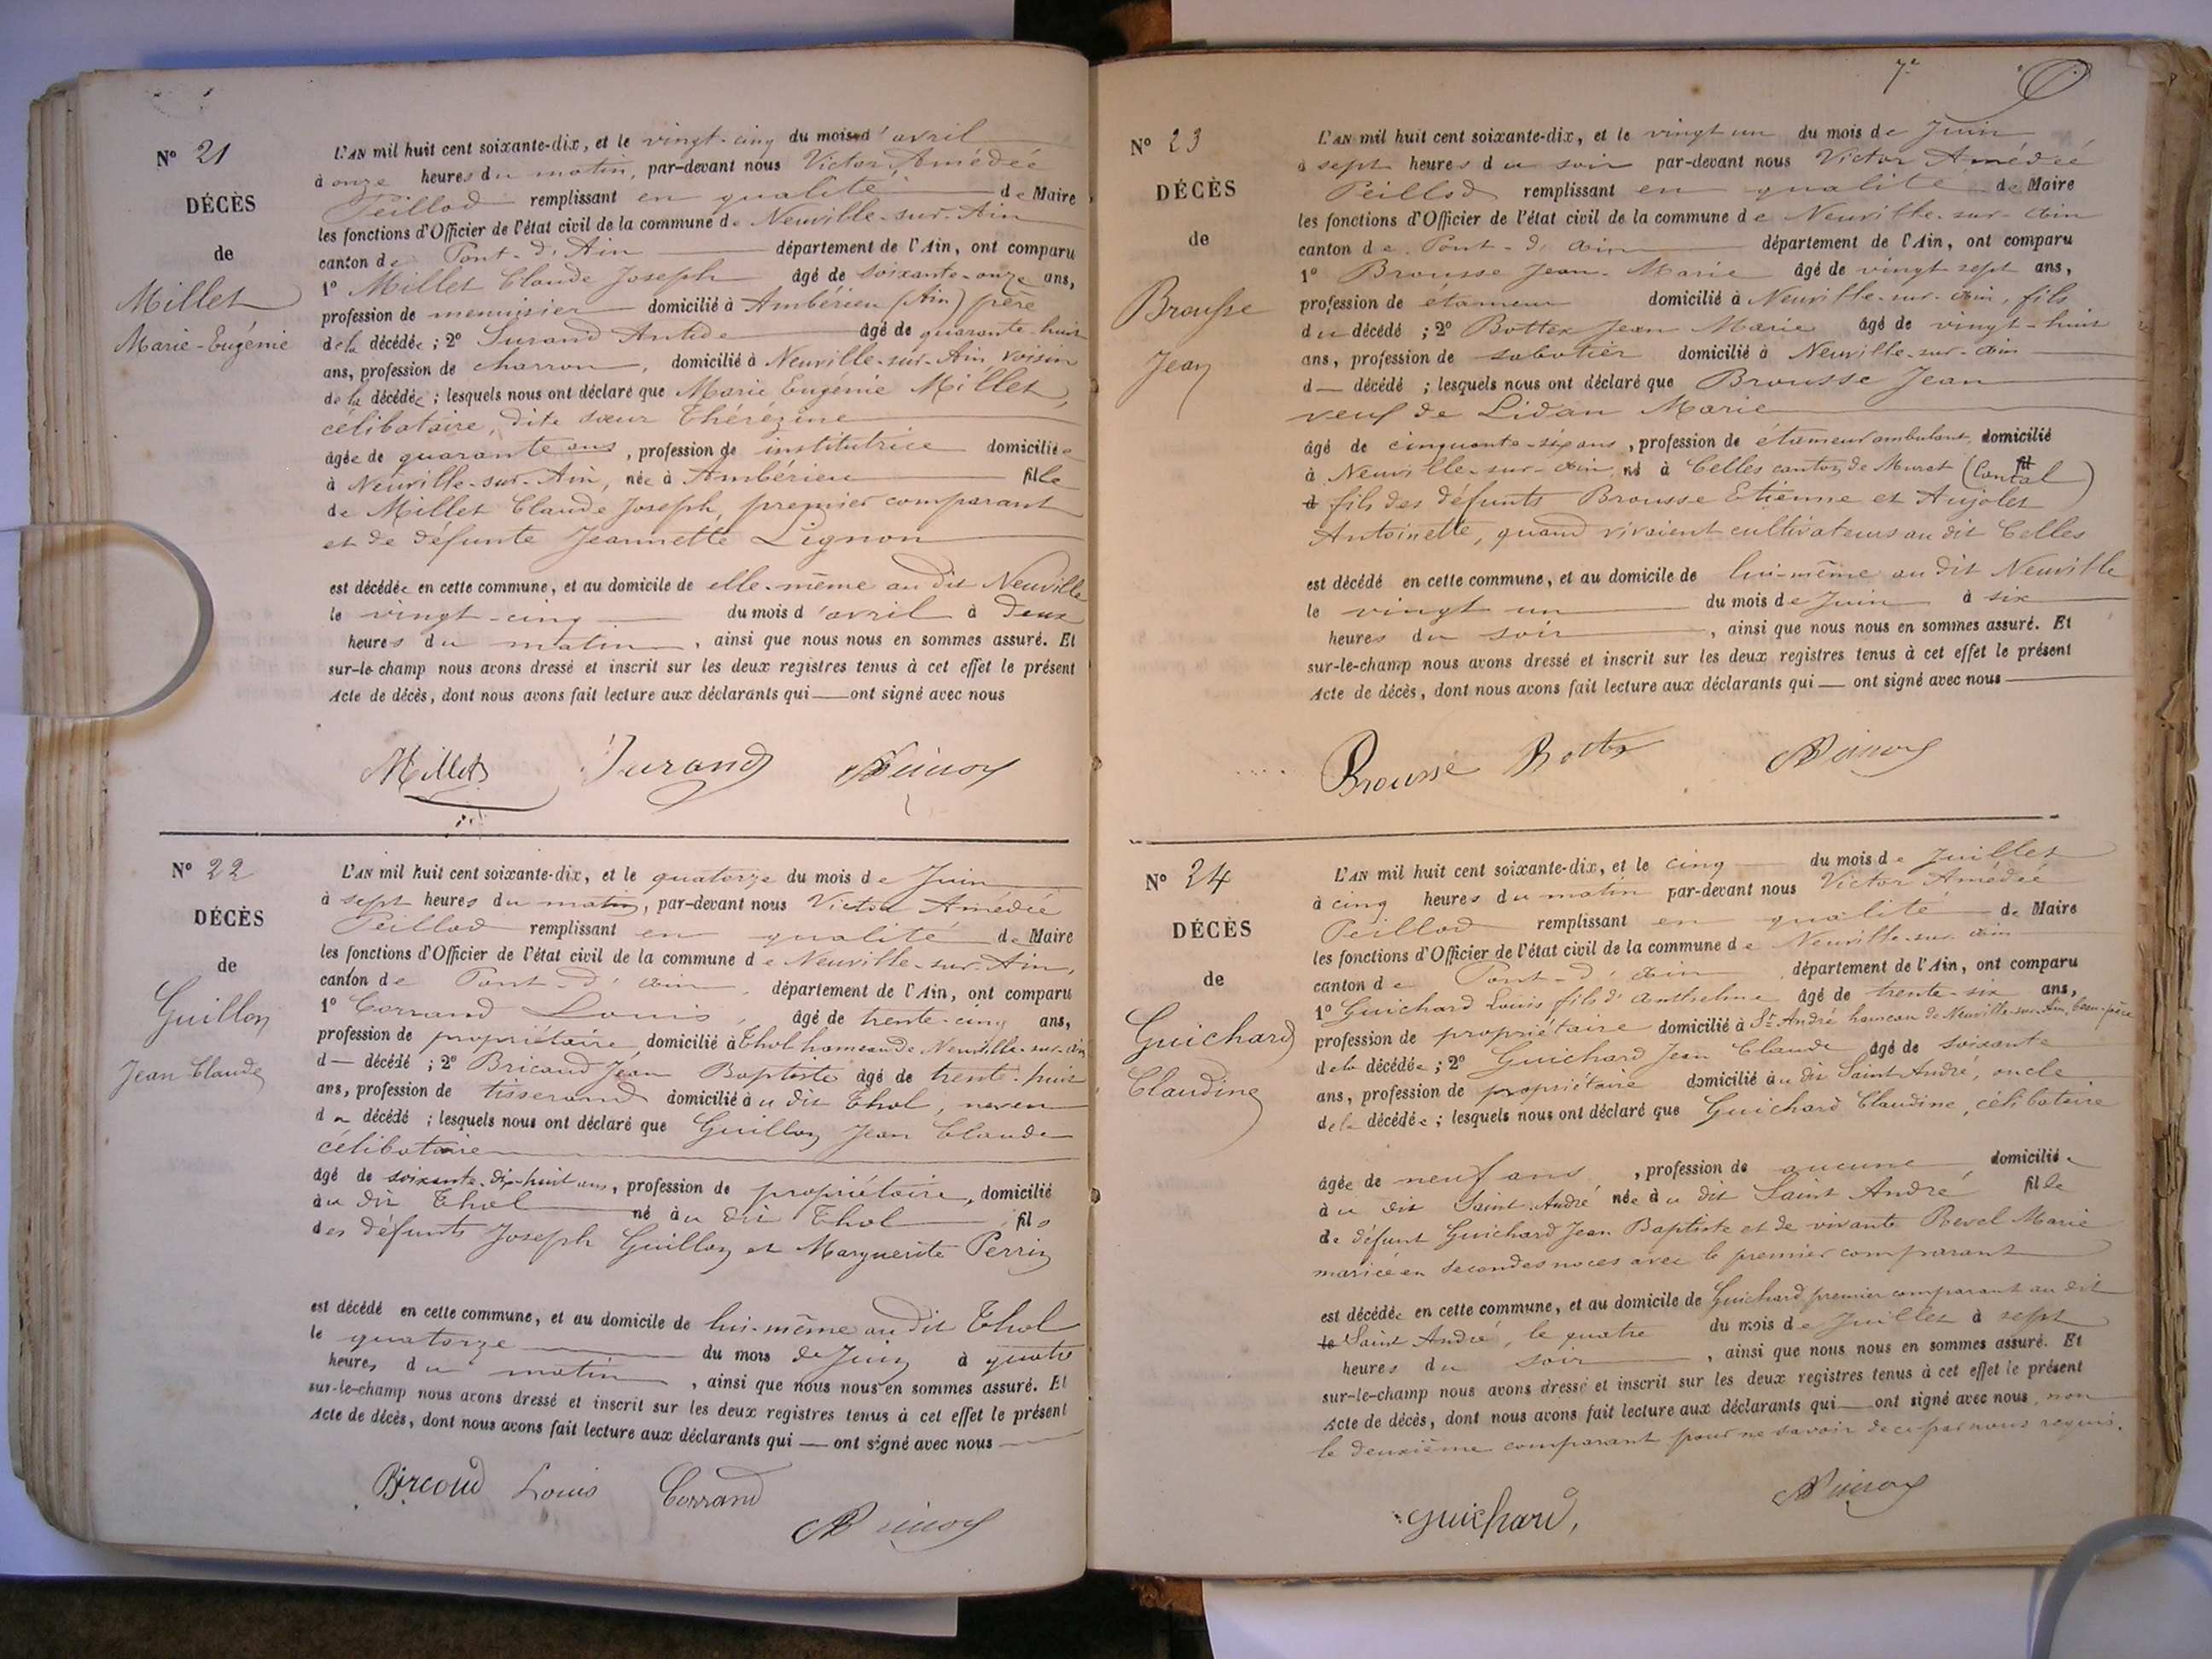 N° 21
DÉCÈS
de
Millet
Marie-Eugénie
L'AN mil huit cent soixante-dix, et le vingt-cinq du mois d'avril
à onze heures du matin, par-devant nous Victor Amédée
Peillod remplissant en qualité de Maire
les fonctions d'Officier de l'état civil de la commune de Neuville-sur-Ain
canton de Pont-d'Ain département de l'Ain, ont comparu
1° Millet Claude Joseph âgé de soixante-onze ans,
profession de menuisier domicilié à Ambérieu (Ain) père
de la décédée ; 2° Durand Antide âgé de quarante-huit
ans, profession de charron, domicilié à Neuville-sur-Ain, voisin
de la décédée ; lesquels nous ont déclaré que Marie Eugénie Millet,
célibataire, dite sœur Thérézine
âgée de quarante ans, profession de institutrice domiciliée
à Neuville-sur-Ain, née à Ambérieu fille
de Millet Claude Joseph, premier comparant
et de défunte Jeannette Lignon
est décédée en cette commune, et au domicile de elle-même au dit Neuville
le vingt-cinq du mois d'avril à deux
heures du matin, ainsi que nous nous en sommes assuré. Et
sur-le-champ nous avons dressé et inscrit sur les deux registres tenus à cet effet le présent
Acte de décès, dont nous avons fait lecture aux déclarants qui — ont signé avec nous
Millet Durand
N° 22
DÉCÈS
de
Guillon
Jean Claude
L'AN mil huit cent soixante-dix, et le quatorze du mois de Juin
à sept heures du matin, par-devant nous Victor Amédée
Peillod remplissant en qualité de Maire
les fonctions d'Officier de l'état civil de la commune de Neuville-sur-Ain,
canton de Pont-d'Ain, département de l'Ain, ont comparu
1° Corrand Louis, âgé de trente-cinq ans,
profession de propriétaire, domicilié à Thol hameau de Neuville-sur-Ain
d — décédé ; 2° Bricaud Jean Baptiste âgé de trente-huit
ans, profession de tisserand domicilié au dit Thol, neveu
du décédé ; lesquels nous ont déclaré que Guillon Jean Claude
célibataire
âgé de soixante-dix-huit ans, profession de propriétaire, domicilié
au dit Thol né au dit Thol fils
des défunts Joseph Guillon et Marguerite Perrin
est décédé en cette commune, et au domicile de lui-même au dit Thol
le quatorze du mois de Juin à quatre
heures du matin, ainsi que nous nous en sommes assuré. Et
sur-le-champ nous avons dressé et inscrit sur les deux registres tenus à cet effet le présent
Acte de décès, dont nous avons fait lecture aux déclarants qui — ont signé avec nous
Louis Corrand
7e
N° 23
DÉCÈS
de
Brousse
Jean
L'AN mil huit cent soixante-dix, et le vingt un du mois de Juin
à sept heures du soir par-devant nous Victor Amédée
Peillod remplissant en qualité de Maire
les fonctions d'Officier de l'état civil de la commune de Neuville-sur-Ain
canton de Pont-d'Ain département de l'Ain, ont comparu
1° Brousse Jean-Marie âgé de vingt sept ans,
profession de étameur domicilié à Neuville-sur-Ain, fils
du décédé ; 2° Bottex Jean Marie âgé de vingt-huit
ans, profession de sabotier domicilié à Neuville-sur-Ain
d — décédé ; lesquels nous ont déclaré que Brousse Jean
veuf de Lidan Marie
âgé de cinquante-six ans, profession de étameur ambulant, domicilié
à Neuville-sur-Ain, né à Celles canton de Murat (Cantal)
fils des défunts Brousse Etienne et Aujolet
Antoinette, quand vivaient cultivateurs au dit Celles
est décédé en cette commune, et au domicile de lui-même au dit Neuville
le vingt un du mois de Juin à six
heures du soir, ainsi que nous nous en sommes assuré. Et
sur-le-champ nous avons dressé et inscrit sur les deux registres tenus à cet effet le présent
Acte de décès, dont nous avons fait lecture aux déclarants qui — ont signé avec nous
Brousse
N° 24
DÉCÈS
de
Guichard
Claudine
L'AN mil huit cent soixante-dix, et le cinq du mois de Juillet
à cinq heures du matin par-devant nous Victor Amédée
Peillod remplissant en qualité de Maire
les fonctions d'Officier de l'état civil de la commune de Neuville-sur-Ain
canton de Pont-d'Ain, département de l'Ain, ont comparu
1° Guichard Louis fils d'Anthelme âgé de trente-six ans,
profession de propriétaire domicilié à St-André hameau de Neuville-sur-Ain, beau-père
de la décédée ; 2° Guichard Jean Claude âgé de soixante
ans, profession de propriétaire domicilié au dit Saint-André, oncle
de la décédée ; lesquels nous ont déclaré que Guichard Claudine, célibataire
âgée de neuf ans, profession de aucune domiciliée
au dit Saint-André née au dit Saint André fille
de défunt Guichard Jean Baptiste et de vivante Revel Marie
mariée en secondes noces avec le premier comparant
est décédée en cette commune, et au domicile de Guichard premier comparant au dit
Saint André, le quatre du mois de Juillet à sept
heures du soir, ainsi que nous nous en sommes assuré. Et
sur-le-champ nous avons dressé et inscrit sur les deux registres tenus à cet effet le présent
Acte de décès, dont nous avons fait lecture aux déclarants qui — ont signé avec nous, non
le deuxième comparant pour ne savoir de ce par nous requis.
Guichard,